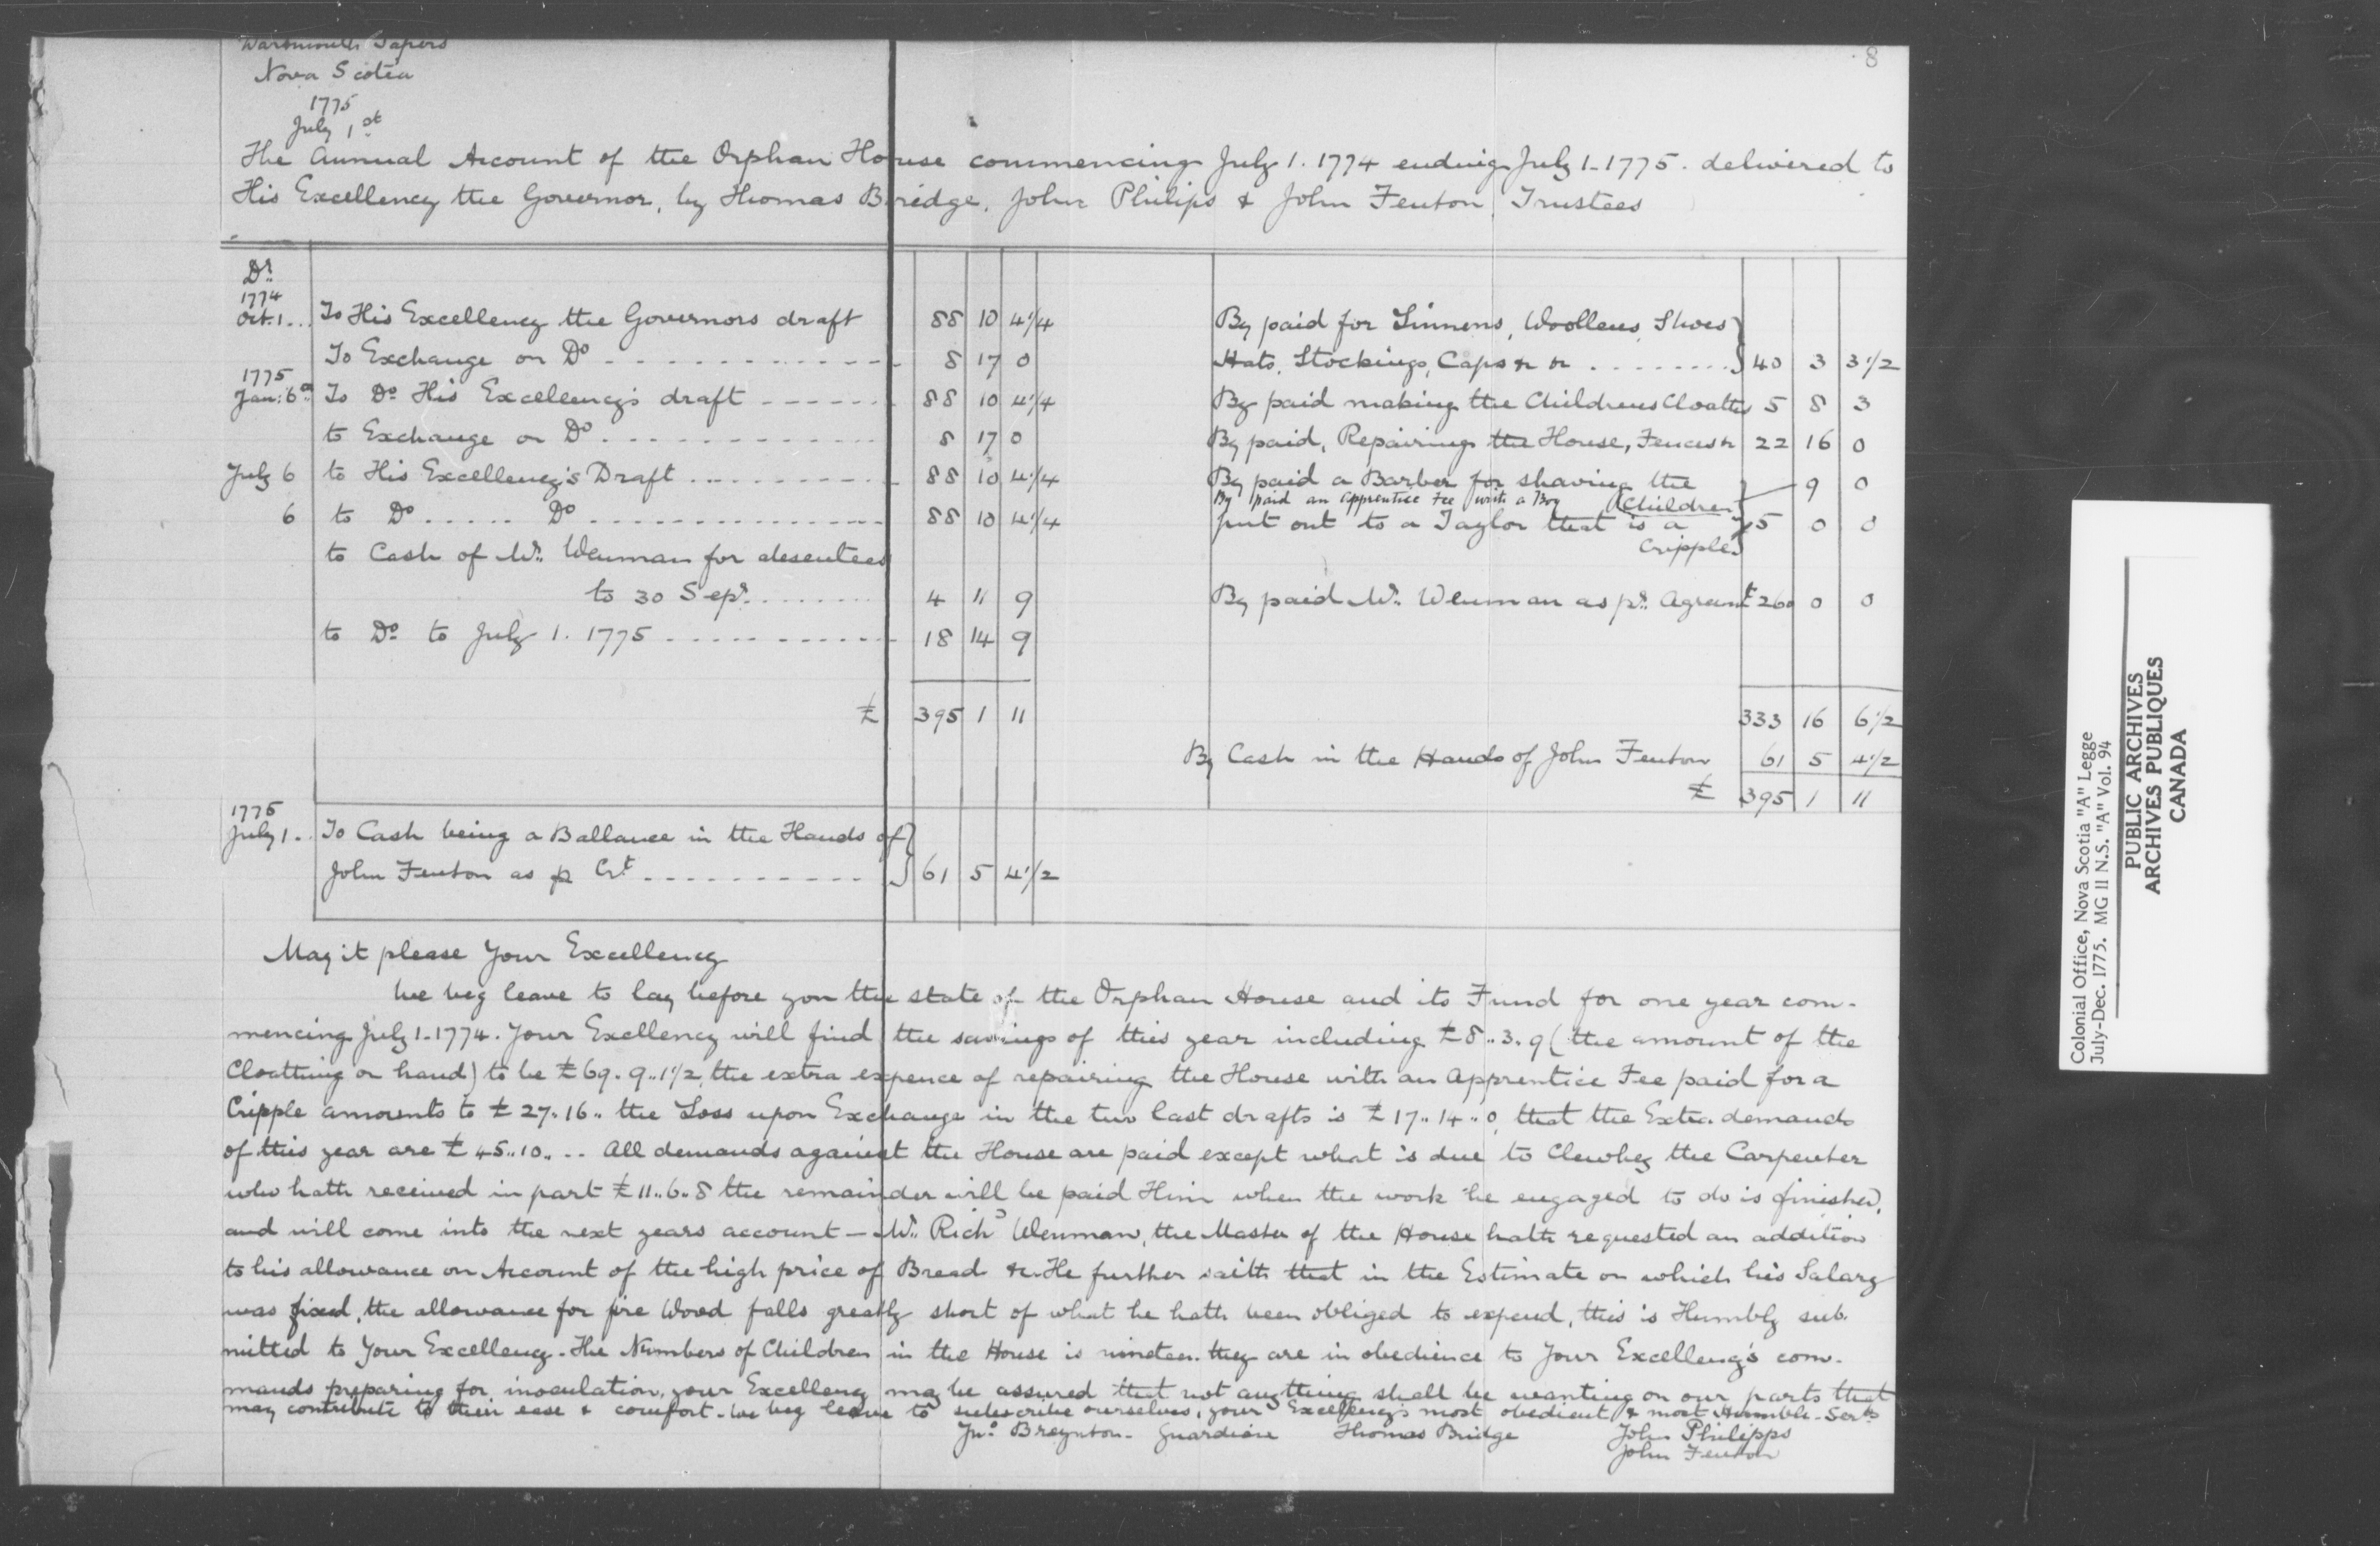 Dartmouth Papers
Nova Scotia
1775
July 1st
8
The Annual Account of the Orphan House commencing July 1. 1774 ending July 1-1775. delivered to
His Excellency the Governor, by Thomas Bridge, John Philips & John Fenton, Trustees
Dr.
1774
Oct. 1... To His Excellency the Governors draft 88 10 4 1/4
To Exchange on Do 8 17 0
1775
Jan: 6 To Do His Excellency's draft 88 10 4 1/4
to Exchange on Do 8 17 0
July 6 to His Excellency's Draft 88 10 4 1/4
6 to Do ..... Do 88 10 4 1/4
to Cash of Mr. Wenman for absentees
to 30 Sepr. 4 11 9
to Do to July 1. 1775 18 14 9
£ 395 1 11
By paid for Linnens, Woollens, Shoes
Hats, Stockings, Caps &c &c 40 3 3 1/2
By paid making the Childrens Cloaths 5 8 3
By paid, Repairing the House, Fences &c 22 16 0
By paid a Barber for shaving the
Children — 9 0
By paid an apprentice Fee with a Boy
put out to a Taylor that is a
Cripple 5 0 0
By paid Mr. Wenman as pr. Agreemt £260 0 0
333 16 6 1/2
By Cash in the Hands of John Fenton 61 5 4 1/2
£ 395 1 11
1775
July 1.. To Cash being a Ballance in the Hands of
John Fenton as p Crt 61 5 4 1/2
May it please Your Excellency
We beg leave to lay before you the state of the Orphan House and its Fund for one year com-
mencing July 1-1774. Your Excellency will find the savings of this year including £8..3.9 (the amount of the
Cloathing on hand) to be £69.9..1 1/2, the extra expence of repairing the House with an Apprentice Fee paid for a
Cripple amounts to £27.16.. the Loss upon Exchange in the two last drafts is £17..14..0, that the Extra demands
of this year are £45..10.. .. All demands against the House are paid except what is due to Clewley the Carpenter
who hath received in part £11..6..8 the remainder will be paid Him when the work he engaged to do is finished,
and will come into the next years account — Mr. Richd Wenman, the Master of the House hath requested an addition
to his allowance on Account of the high price of Bread &c. He further saith that in the Estimate on which his Salary
was fixed, the allowance for fire Wood falls greatly short of what he hath been obliged to expend, this is Humbly sub-
mitted to Your Excellency. The Numbers of Children in the House is nineteen. they are in obedience to Your Excellency's com-
mands preparing for inoculation, your Excellency may be assured that not anything shall be wanting on our parts that
may contribute to their ease & comfort. We beg leave to subscribe ourselves, your Excellency's most obedient & most Humble Serts
Jno. Breynton - Guardian Thomas Bridge John Philipps
John Fenton
Colonial Office, Nova Scotia "A" Legge
July-Dec. 1775. MG 11 N.S. "A" Vol. 94
PUBLIC ARCHIVES
ARCHIVES PUBLIQUES
CANADA